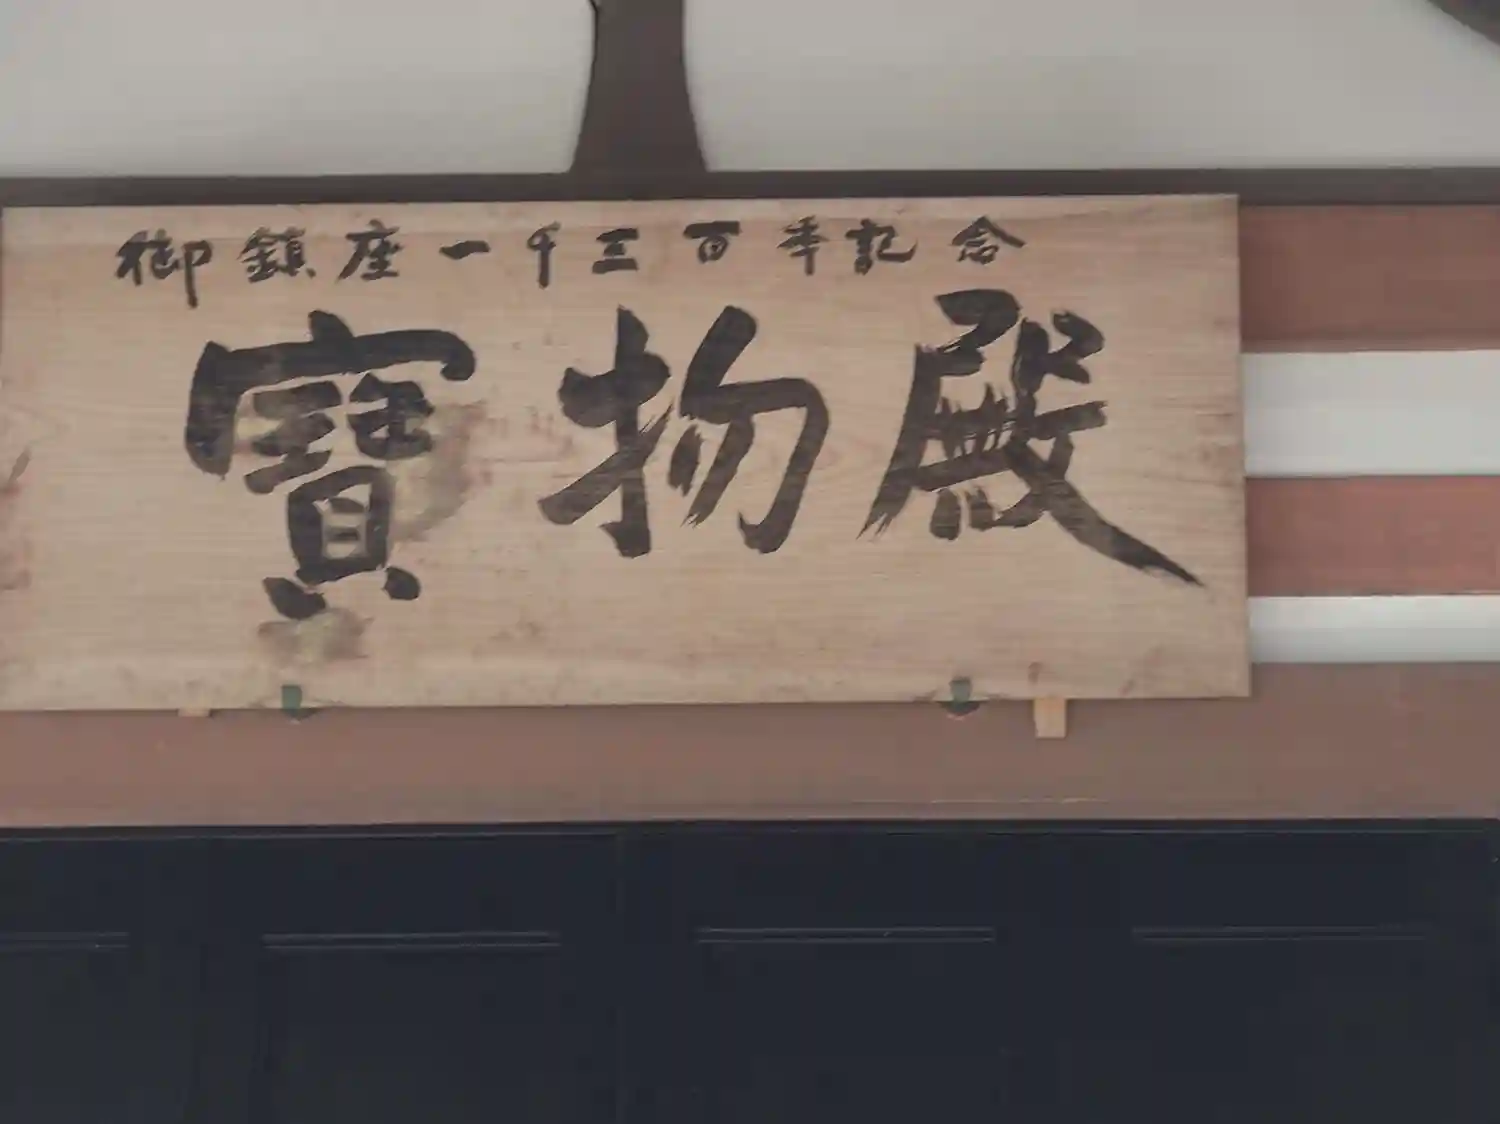 御鎮座一千三百年記念
寶物殿